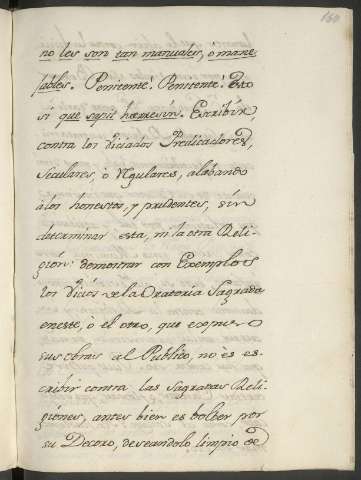 160
no les son tan manuales, ó mane-
jables. Penitente! Penitente! Esto
si que sapit hæresin. Escribir,
contra los viciados Predicadores,
Seculares, ó Regulares, alabando
à los honestos, y prudentes, sin
determinar esta, ni la otra Reli-
gión: demostrar con Exemplos
los vicios de la Oratoria Sagrada
en este, ò el otro, que expone
sus obras al Publico, no es es-
cribir contra las Sagradas Reli-
giones, antes bien es bolber por
su Decoro, deseandolo limpio de